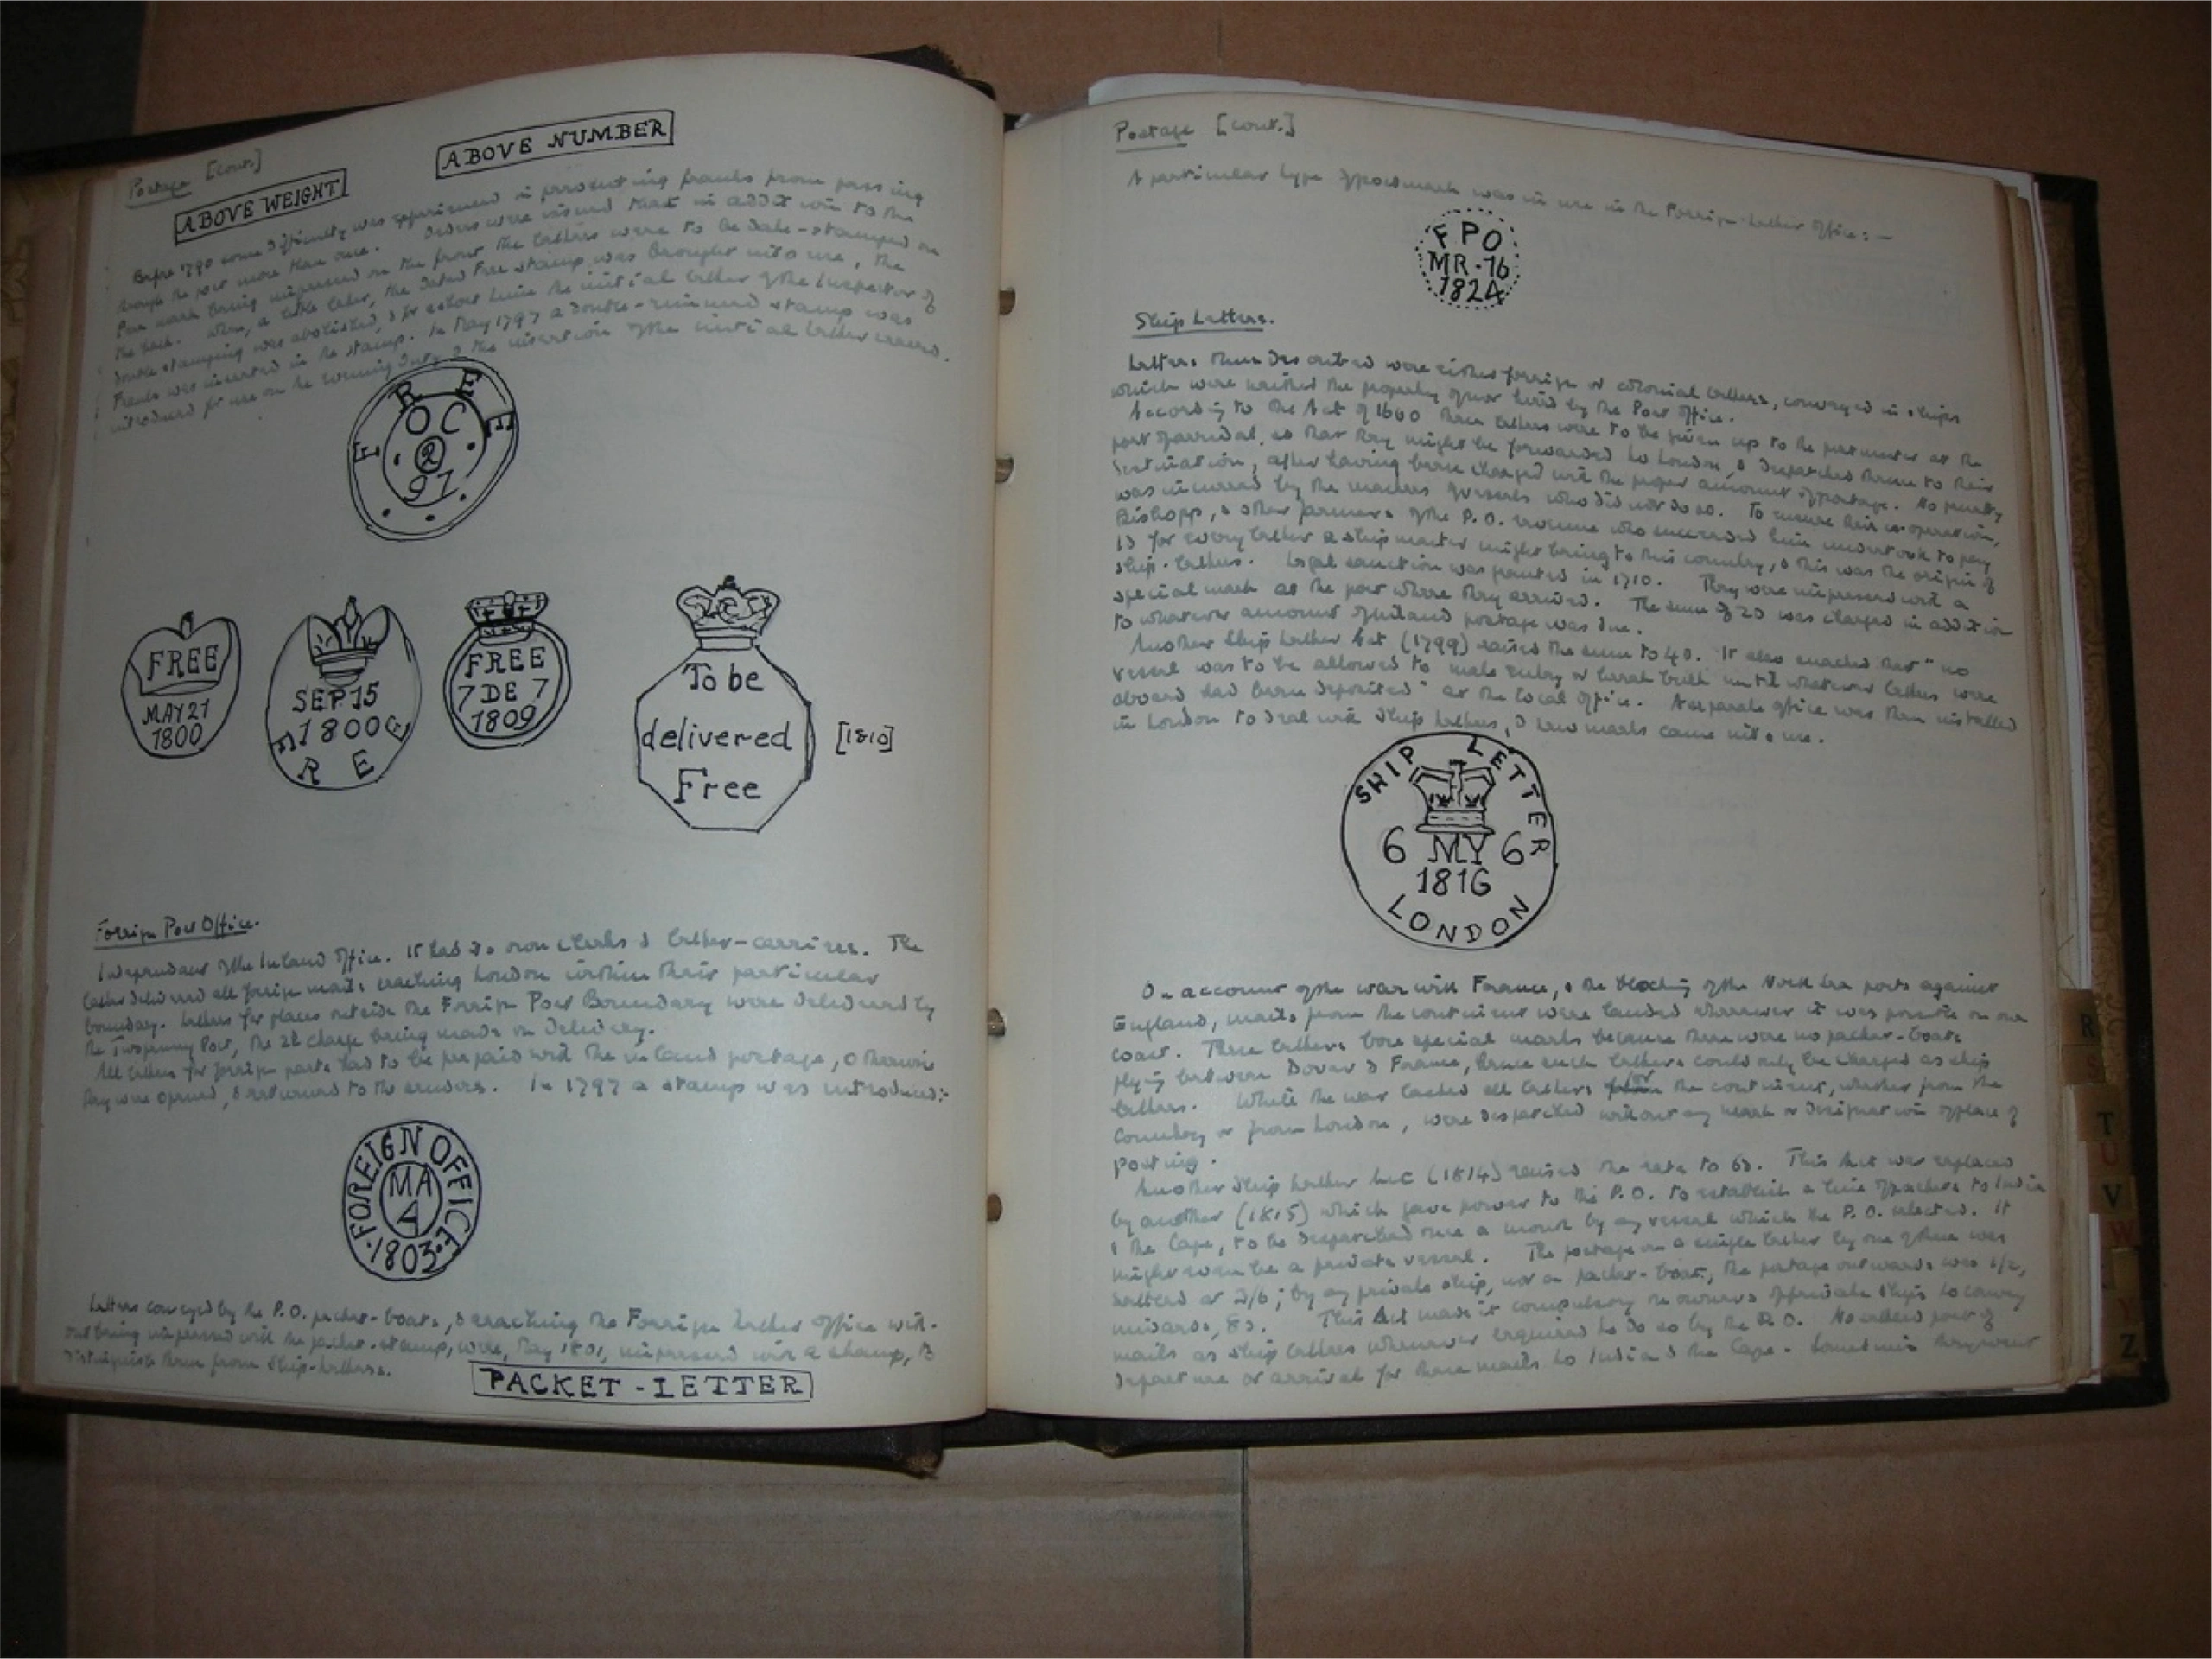 Postage [cont.]
ABOVE NUMBER
ABOVE WEIGHT
Before 1790 some difficulty was experienced in preventing franks from passing
through the post more than once. Orders were issued that in addition to the
Free mark being impressed on the front the letters were to be date-stamped on
the back. When, a little later, the dated Free stamp was brought into use, the
double stamping was abolished, & for a short time the initial letter of the Inspector of
Franks was inserted in the stamp. In May 1797 a double-rimmed stamp was
introduced for use on the evening duty & the insertion of the initial letter ceased.
FREE
OC
2
97.
FREE
MAY 21
1800
SEP 15
1800
FREE
FREE
7 DE 7
1809
To be
delivered
Free
[1810]
Foreign Post Office.
Independent of the Inland Office. It had its own clerks & letter-carriers. The
latter delivered all foreign mails reaching London within their particular
boundary. Letters for places outside the Foreign Post Boundary were delivered by
the Twopenny Post, the 2d charge being made on delivery.
All letters for foreign parts had to be prepaid with the inland postage, otherwise
they were opened, & returned to the senders. In 1797 a stamp was introduced:-
FOREIGN OFFICE
MA
4
1803
Letters conveyed by the P.O. packet-boats, & reaching the Foreign Letter Office with-
out being impressed with the packet-stamp, were, May 1801, impressed with a stamp, to
distinguish them from Ship-letters.
PACKET-LETTER
Postage [cont.]
A particular type of postmark was in use in the Foreign Letter Office:-
FPO
MR-16
1824
Ship Letters.
Letters thus described were either foreign or colonial letters, conveyed in ships
which were neither the property of nor hired by the Post Office.
According to the Act of 1660 these letters were to be given up to the postmaster at the
port of arrival, so that they might be forwarded to London, & despatched thence to their
destination, after having been charged with the proper amount of postage. No penalty
was incurred by the masters of vessels who did not do so. To ensure their co-operation,
Bishopp, & other farmers of the P.O. revenue who succeeded him undertook to pay
1d for every letter a ship master might bring to this country, & this was the origin of
ship-letters. Legal sanction was granted in 1710. They were impressed with a
special mark at the port where they arrived. The sum of 2d was charged in addition
to whatever amount of inland postage was due.
Another Ship Letter Act (1799) raised the sum to 4d. It also enacted that "no
vessel was to be allowed to make entry or break bulk until whatever letters were
aboard had been deposited" at the local office. A separate office was then installed
in London to deal with Ship Letters, & new marks came into use.
SHIP LETTER
6 MY 6
1816
LONDON
On account of the war with France, & the blocking of the North Sea ports against
England, mails from the continent were landed wherever it was possible on our
coast. These letters bore special marks because there were no packet-boats
plying between Dover & France, hence such letters could only be charged as ship
letters. While the war lasted all letters for the continent, whether from the
country or from London, were despatched without any mark or designation of place of
posting.
Another Ship Letter Act (1814) raised the rate to 6d. This Act was replaced
by another (1815) which gave power to the P.O. to establish a line of packets to India
& the Cape, to be despatched once a month by any vessel which the P.O. selected. It
might even be a private vessel. The postage on a single letter by one of these was
settled at 3/6; by any private ship, not a packet-boat, the postage outwards was 1/2,
inwards, 8d. This Act made it compulsory on owners of private ships to convey
mails as ship letters whenever required to do so by the P.O. No settled port of
departure or arrival for these mails to India & the Cape. Sometimes they went
R
S
T
U
V
W
Z